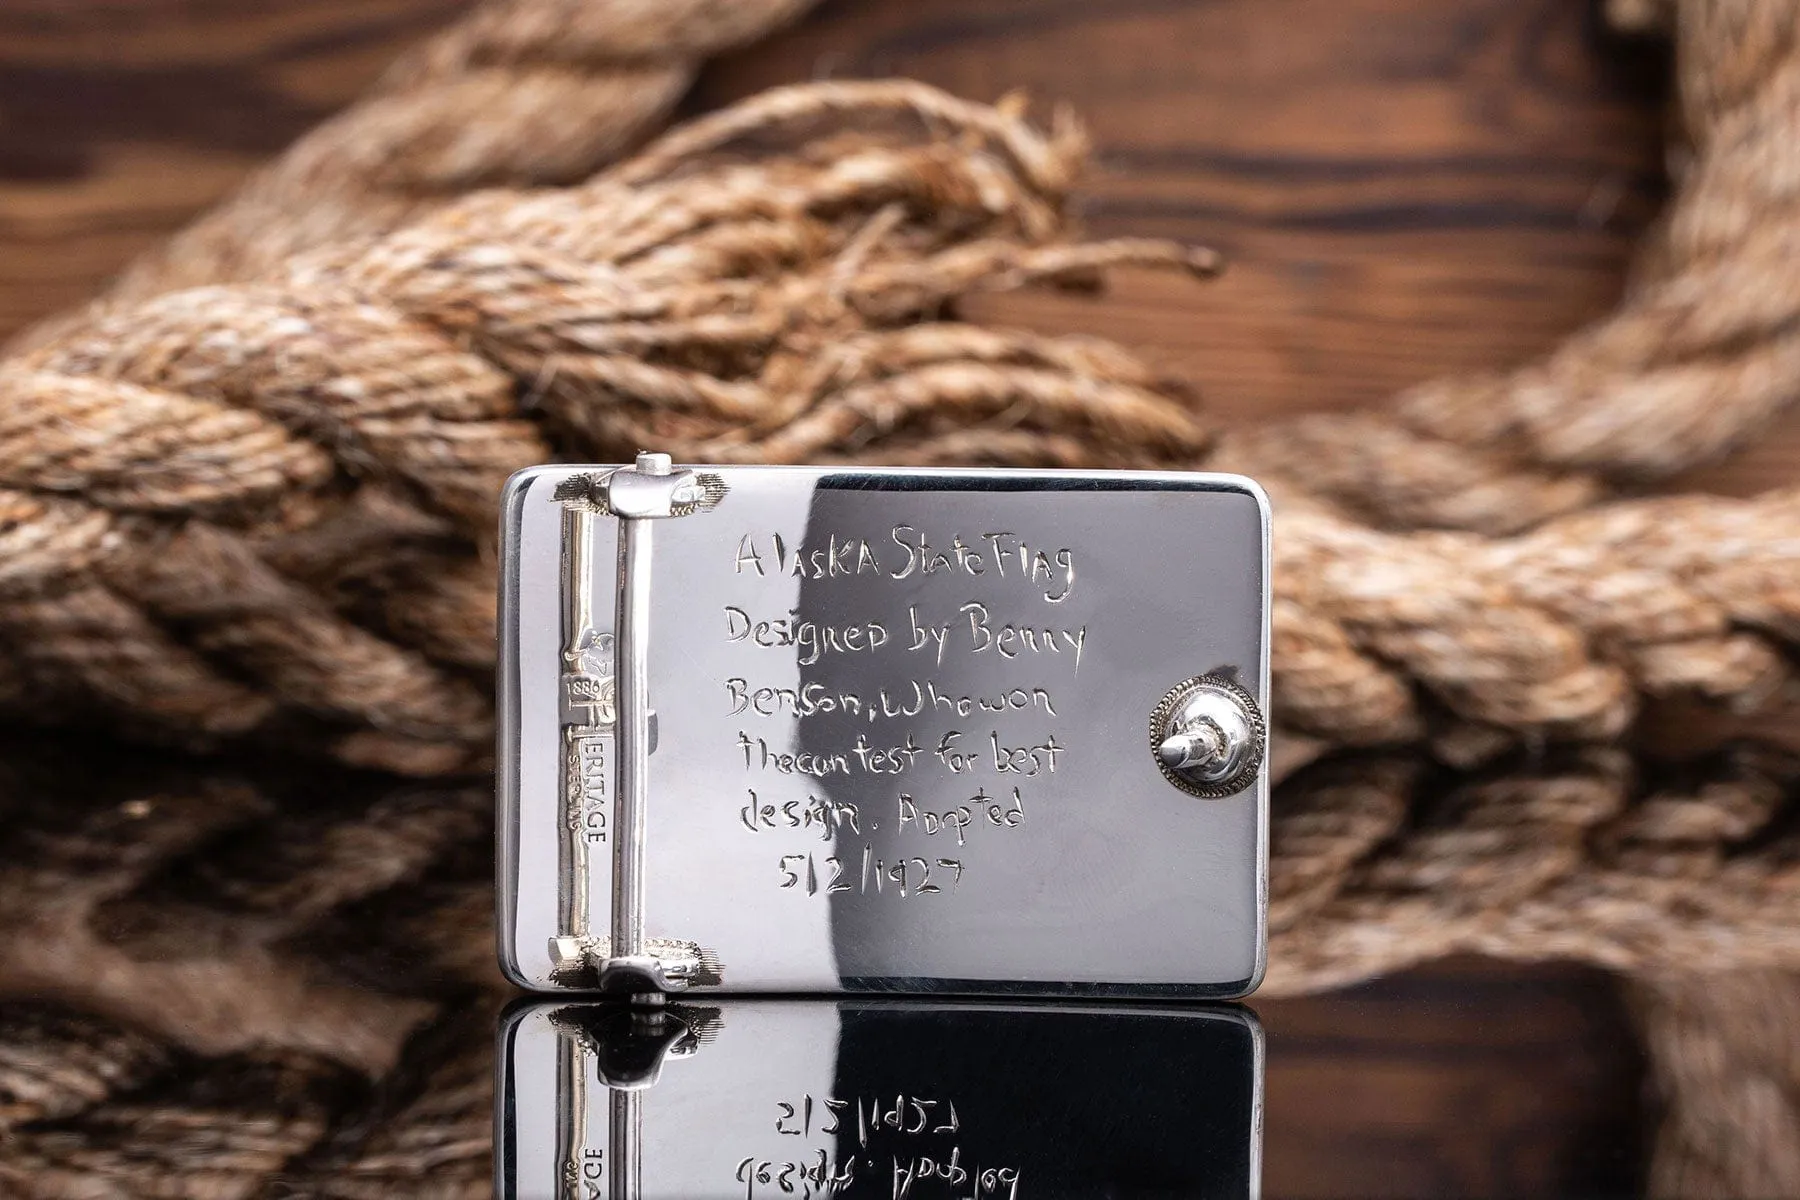 Alaska State Flag
Designed by Benny
Benson, Who won
the contest for best
design. Adopted
5/2/1927
1886
HERITAGE
STERLING